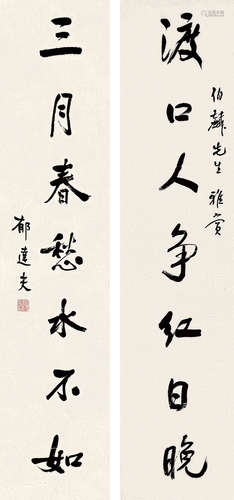 渡口人争红日晚
伯麟先生雅赏
三月春愁水不如
郁达夫